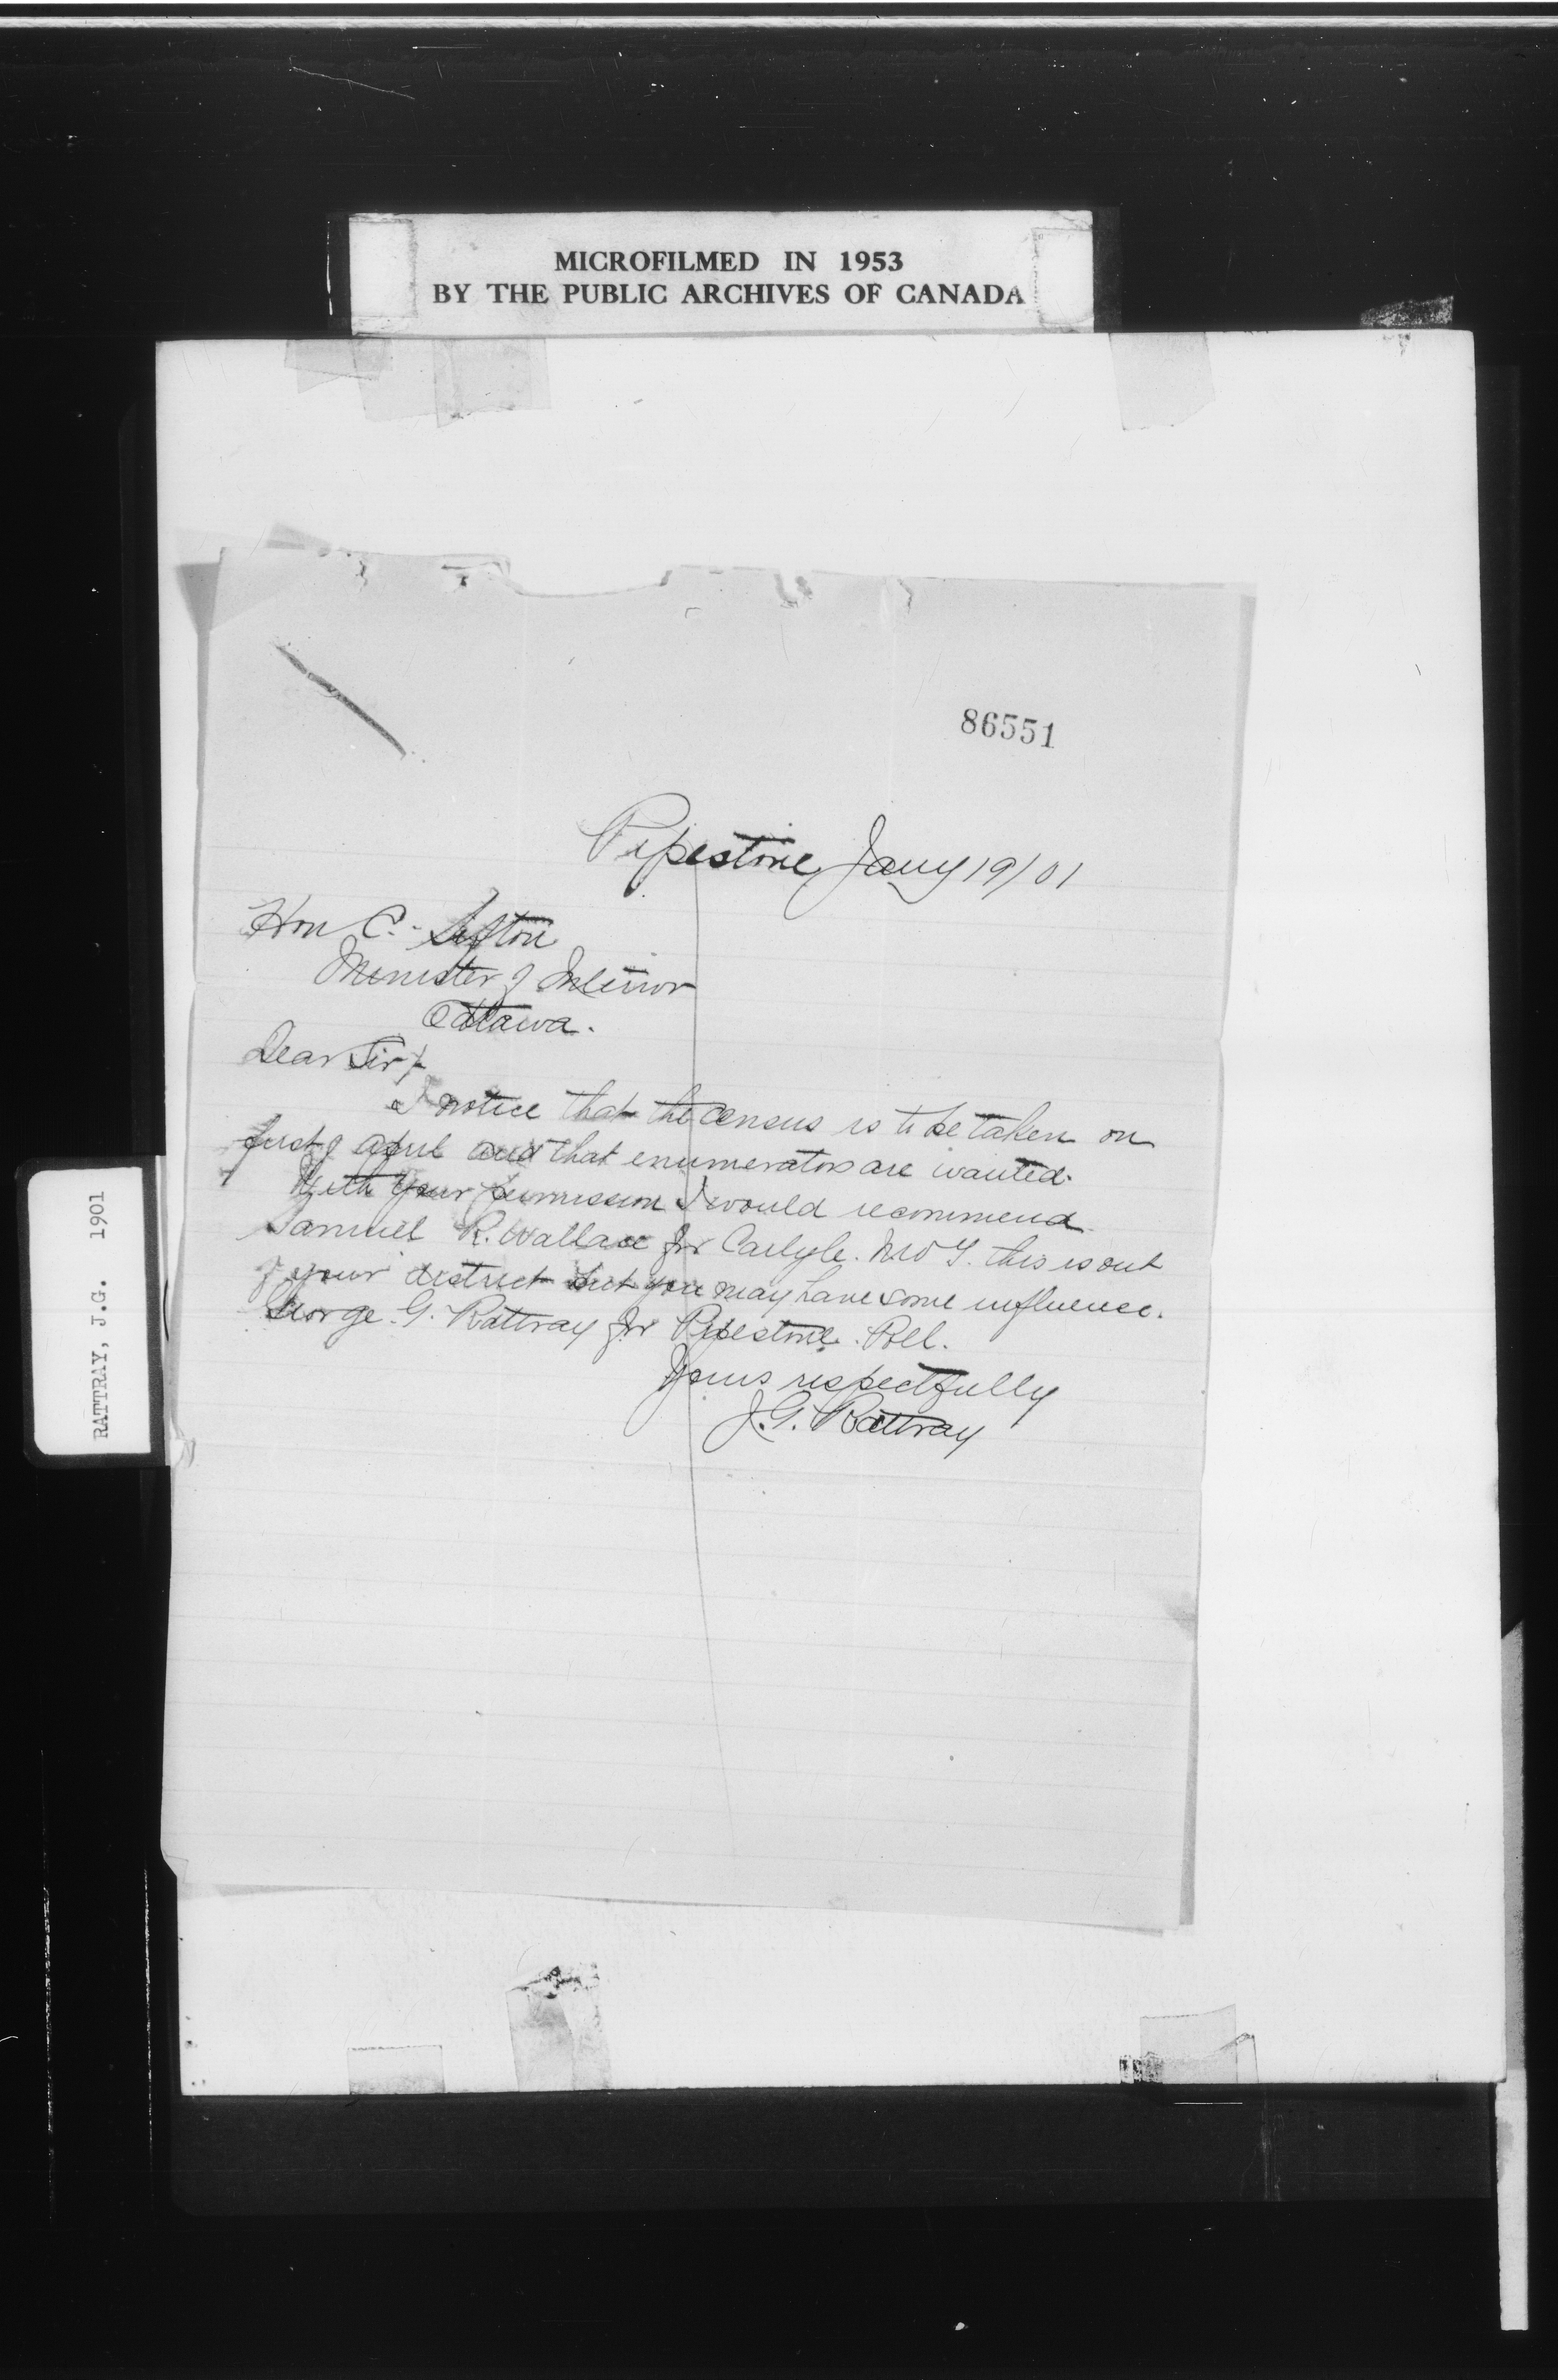 MICROFILMED IN 1953
BY THE PUBLIC ARCHIVES OF CANADA
RATTRAY, J.G. 1901
86551
Pipestone Jany 19/01
Hon C. Sifton
Minister of Interior
Ottawa.
Dear Sir/-
I notice that the census is to be taken on
first of april and that enumerators are wanted.
With your permission I would recommend
Samuel R. Wallace for Carlyle. N W T. this is out
of your district but you may have some influence.
George G. Rattray for Pipestone Poll.
Yours respectfully
J.G. Rattray